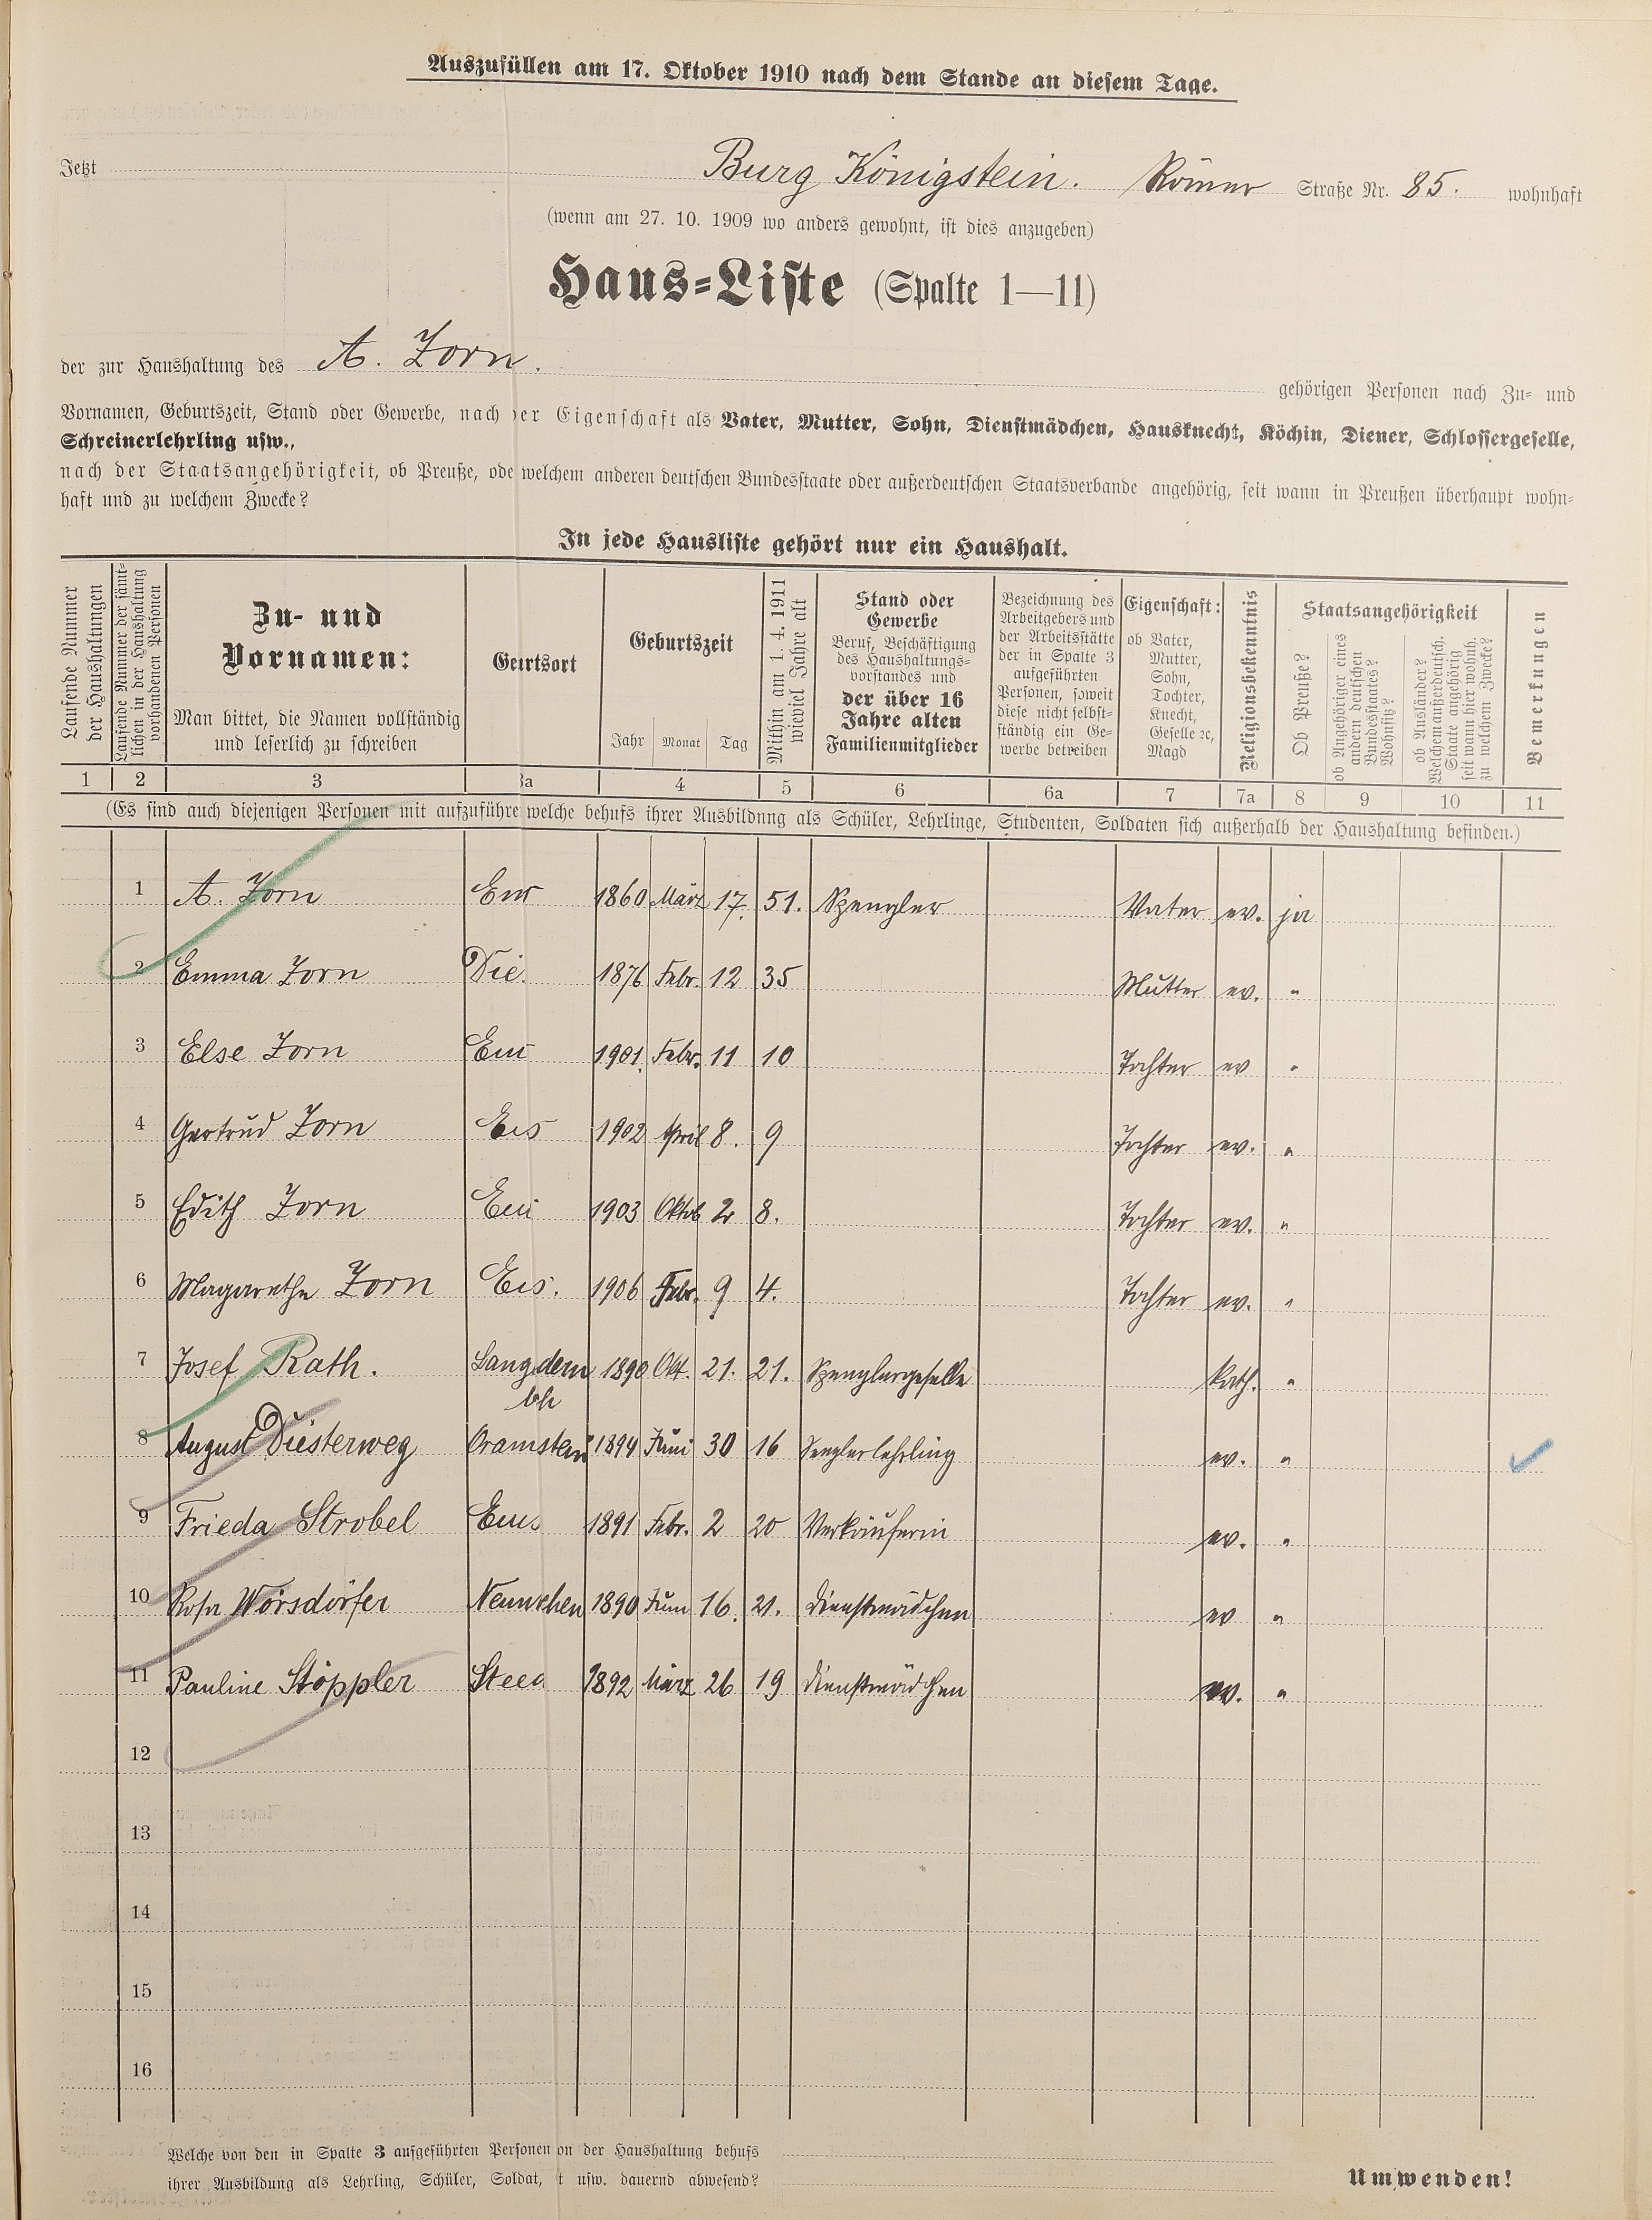 Auszufüllen am 17. Oktober 1910 nach dem Stande an diesem Tage.
Jetzt Burg Königstein. Römer Straße Nr. 85. wohnhaft
(wenn am 27. 10. 1909 wo anders gewohnt, ist dies anzugeben)
Haus=Liste (Spalte 1—11)
der zur Haushaltung des A. Zorn. gehörigen Personen nach Zu= und
Vornamen, Geburtszeit, Stand oder Gewerbe, nach der Eigenschaft als Vater, Mutter, Sohn, Dienstmädchen, Hausknecht, Köchin, Diener, Schlossergeselle,
Schreinerlehrling usw.,
nach der Staatsangehörigkeit, ob Preuße, ode welchem anderen deutschen Bundesstaate oder außerdeutschen Staatsverbande angehörig, seit wann in Preußen überhaupt wohn=
haft und zu welchem Zwecke?
In jede Hausliste gehört nur ein Haushalt.
Laufende Nummer
der Haushaltungen
Laufende Nummer der sämt=
lichen in der Haushaltung
vorhandenen Personen
Zu- und
Vornamen:
Man bittet, die Namen vollständig
und leserlich zu schreiben
Geurtsort
Geburtszeit
Jahr Monat Tag
Mithin am 1. 4. 1911
wieviel Jahre alt
Stand oder
Gewerbe
Beruf, Beschäftigung
des Haushaltungs=
vorstandes und
der über 16
Jahre alten
Familienmitglieder
Bezeichnung des
Arbeitgebers und
der Arbeitsstätte
der in Spalte 3
aufgeführten
Personen, soweit
diese nicht selbst=
ständig ein Ge=
werbe betreiben
Eigenschaft:
ob Vater,
Mutter,
Sohn,
Tochter,
Knecht,
Geselle ꝛc,
Magd
Religionsbekenntnis
Staatsangehörigkeit
Ob Preuße?
ob Angehöriger eines
andern deutschen
Bundesstaates?
Wohnsitz?
ob Ausländer?
Welchem außerdeutsch.
Staate angehörig
seit wann hier wohnh.
zu welchem Zwecke?
Bemerkungen
1 2 3 3a 4 5 6 6a 7 7a 8 9 10 11
(Es sind auch diejenigen Personen mit aufzuführe welche behufs ihrer Ausbildung als Schüler, Lehrlinge, Studenten, Soldaten sich außerhalb der Haushaltung befinden.)
1 A. Zorn 1860 März 17. 51. Spengler Vater ev. ja
2 Emma Zorn 1876 Febr. 12 35 Mutter ev. "
3 Else Zorn 1901. Febr. 11 10 Tochter ev "
4 Gertrud Zorn 1902 April 8. 9 Tochter ev. "
5 Edith Zorn 1903 Oktob 2 8. Tochter ev. "
6 Magarethe Zorn 1906 Febr. 9 4. Tochter ev. "
7 Josef Rath. 1890 Okt. 21. 21. Spenglergeselle kath. "
8 August Diesterweg 1894 Juni 30 16 Senglerlehrling ev. "
9 Frieda Strobel Ems 1891 Febr. 2 20 Verkäuferin ev. "
10 Rosa Wörsdörfer 1890 Juni 16. 21. Dienstmädchen ev "
11 Pauline Stöppler 1892 März 26 19 Dienstmädchen ev. "
12
13
14
15
16
Welche von den in Spalte 3 aufgeführten Personen on der Haushaltung behufs
ihrer Ausbildung als Lehrling, Schüler, Soldat, t usw. dauernd abwesend?
Umwenden!